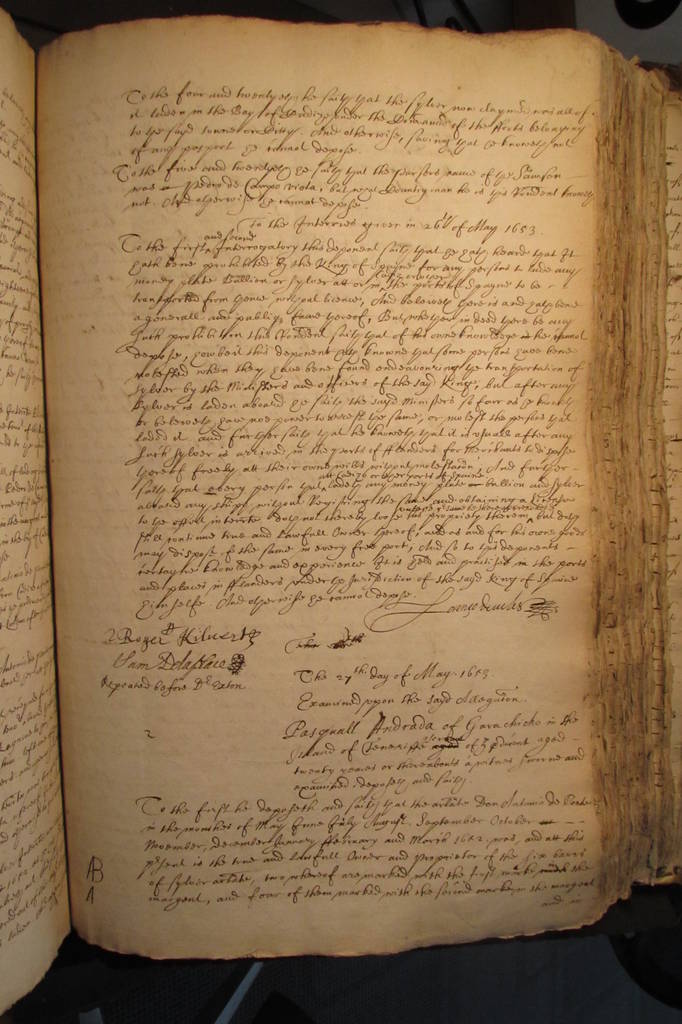 To the four and twentyeth he saith that the sylver now claymed was all of
it laden in the Bay of Cadiz under the Command of the fforts belonging
to the sayd towne or Citty. And otherwise, saving that he knoweth not
of any passport he cannot depose.
To the five and twentyeth he saith that the Pursers name of the Samson
was Pedro de Campo viola, but what Countryman he is this deponent knoweth
not. And otherwise he cannot depose.
To the Interries given in 26th of May 1653.
To the first and second Interrogatory this deponent saith that he hath heard that It
hath bene prohibited by the King of Spayne for any persons to lade any
money plate Bullion or sylver att or in the ports of Spayne to be
transported from thence without licence, And beleeveth there is and hath bene
a generall and publique fame thereof, But whether indeed there be any
such prohibition this deponent saith that of his owne knowledge he cannot
depose, howbeit this deponent hath knowne that some persons have bene
molested when they have bene found endeavouring the transportation of
sylver by the Ministers and officers of the sayd King, but after any
sylver is laden aboard he saith the sayd Ministers so farr as he knoweth
or beleeveth have not power to arrest the same, or molest the persons that
laded it and further saith that he knoweth that it is usuall after any
such sylver is arrived in the ports of fflanders for the claimers to dispose
thereof freely att their owne wills without molestation, And further
saith that every person that ladeth any money plate bullion and sylver
att Cadiz or other ports of Spaine
aboard any shipp without Registring the same and obtaining a licence
to the effect interrate doth not thereby loose the propriety therein, but doth
still continue true and lawfull Owner thereof, and as and for his owne goods
may dispose of the same in every free port, And so to this deponents
certayne knowledge and experience It is used and practised in the ports
and places in fflanders under the Jurisdiction of the sayd King of Spaine
himselfe. And otherwise he cannot depose.
2 Roger Kilvert
Sam Delaplace
Repeated before Dr. Exton
The 27th. day of May. 1653.
Examined upon the sayd allegation.
2
Pasquall Andrada of Garachico in the
Island of Teneriffe aged
twenty yeares or thereabouts a witnes sworne and
examined deposeth and saith.
To the first he deposeth and saith that the arlate Don Antonio de Ponte
in the monthes of May June July August September October
November, december January ffebruary and March 1652. was, and att this
present is the true and lawfull Owner and proprietor of the six barrs
of sylver arlate, two whereof are marked with the first marke in the
AB
1
margent, and four of them marked with the second marke in the margent
and